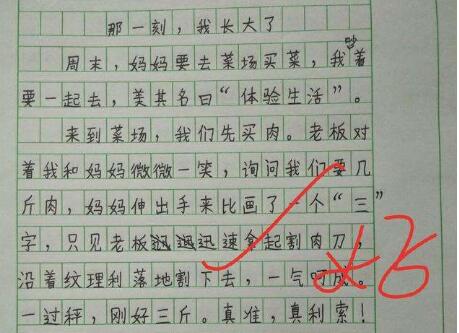 那一刻，我长大了
周末，妈妈要去菜场买菜，我吵着
要一起去，美其名曰“体验生活”。
来到菜场，我们先买肉。老板对
着我和妈妈微微一笑，询问我们要几
斤肉，妈妈伸出手来比画了一个“三”
字，只见老板迅速拿起割肉刀，
沿着纹理利落地割下去，一气呵成。
一过秤，刚好三斤。真准，真利索！